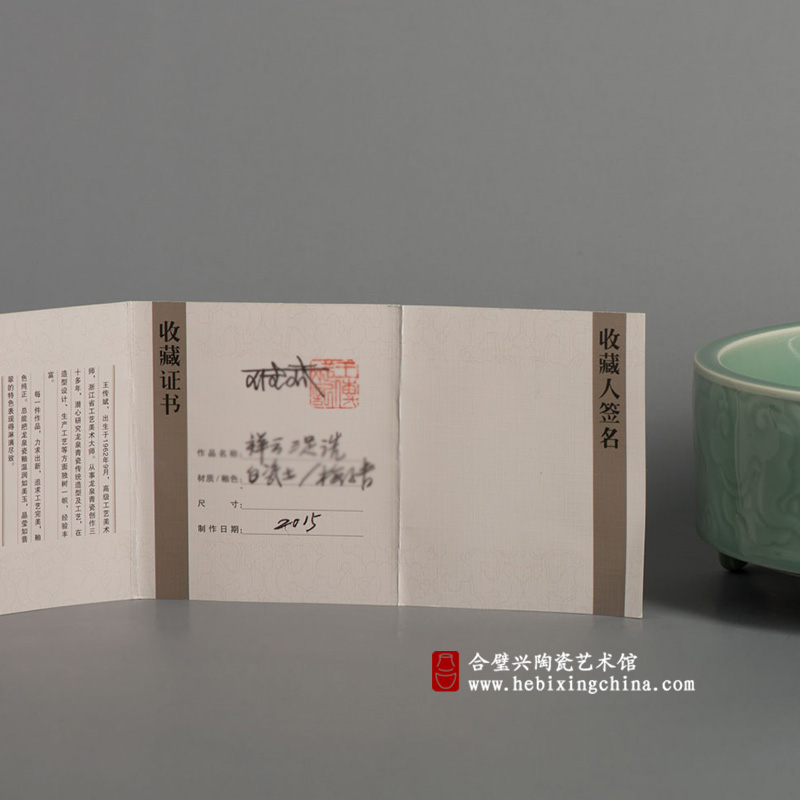 王传斌，出生于1962年9月，高级工艺美术
师，浙江省工艺美术大师。从事龙泉青瓷创作三
十多年，潜心研究龙泉青瓷传统造型及工艺，在
造型设计、生产工艺等方面独树一帜，经验丰
富。
每一件作品，力求出新，追求工艺完美，釉
色纯正。总能把龙泉瓷釉温润如美玉，晶莹如翡
翠的特色表现得淋漓尽致。
收藏证书
作品名称: 祥云三足洗
材质/釉色: 白瓷土/梅子青
尺 寸:
制作日期: 2015
收藏人签名
合璧兴陶瓷艺术馆
www.hebixingchina.com